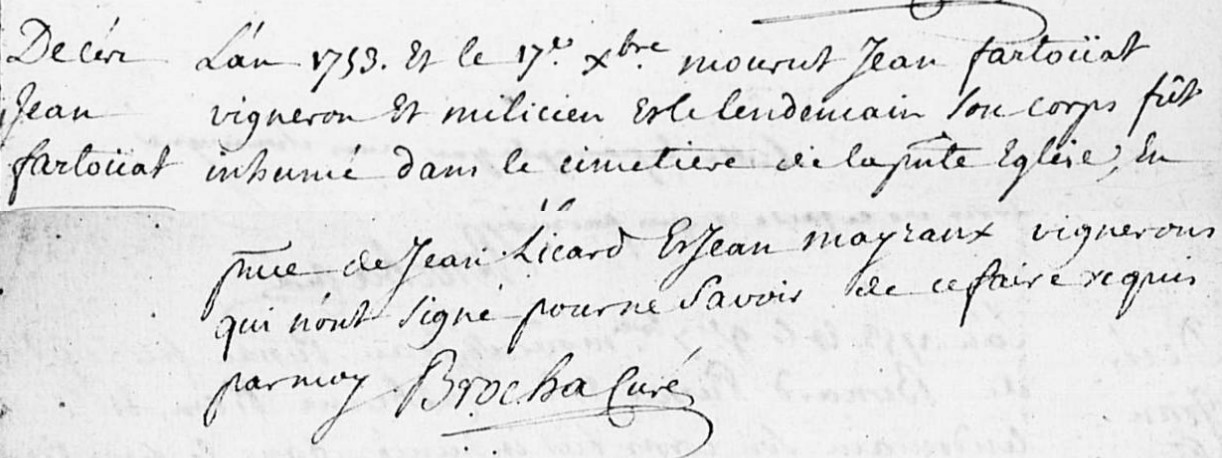 Décès
Jean
fartoüat
L'an 1753. Et le 17e. xbre mourut Jean fartoüat
vigneron Et milicien Et le lendemain Son corps fût
inhumé dans le cimetiere de la pnte Eglise, En
pnce de Jean Licard Et Jean mayraux vignerons
qui n'ont signé pour ne Savoir de ce faire requis
par moy Brocha Curé